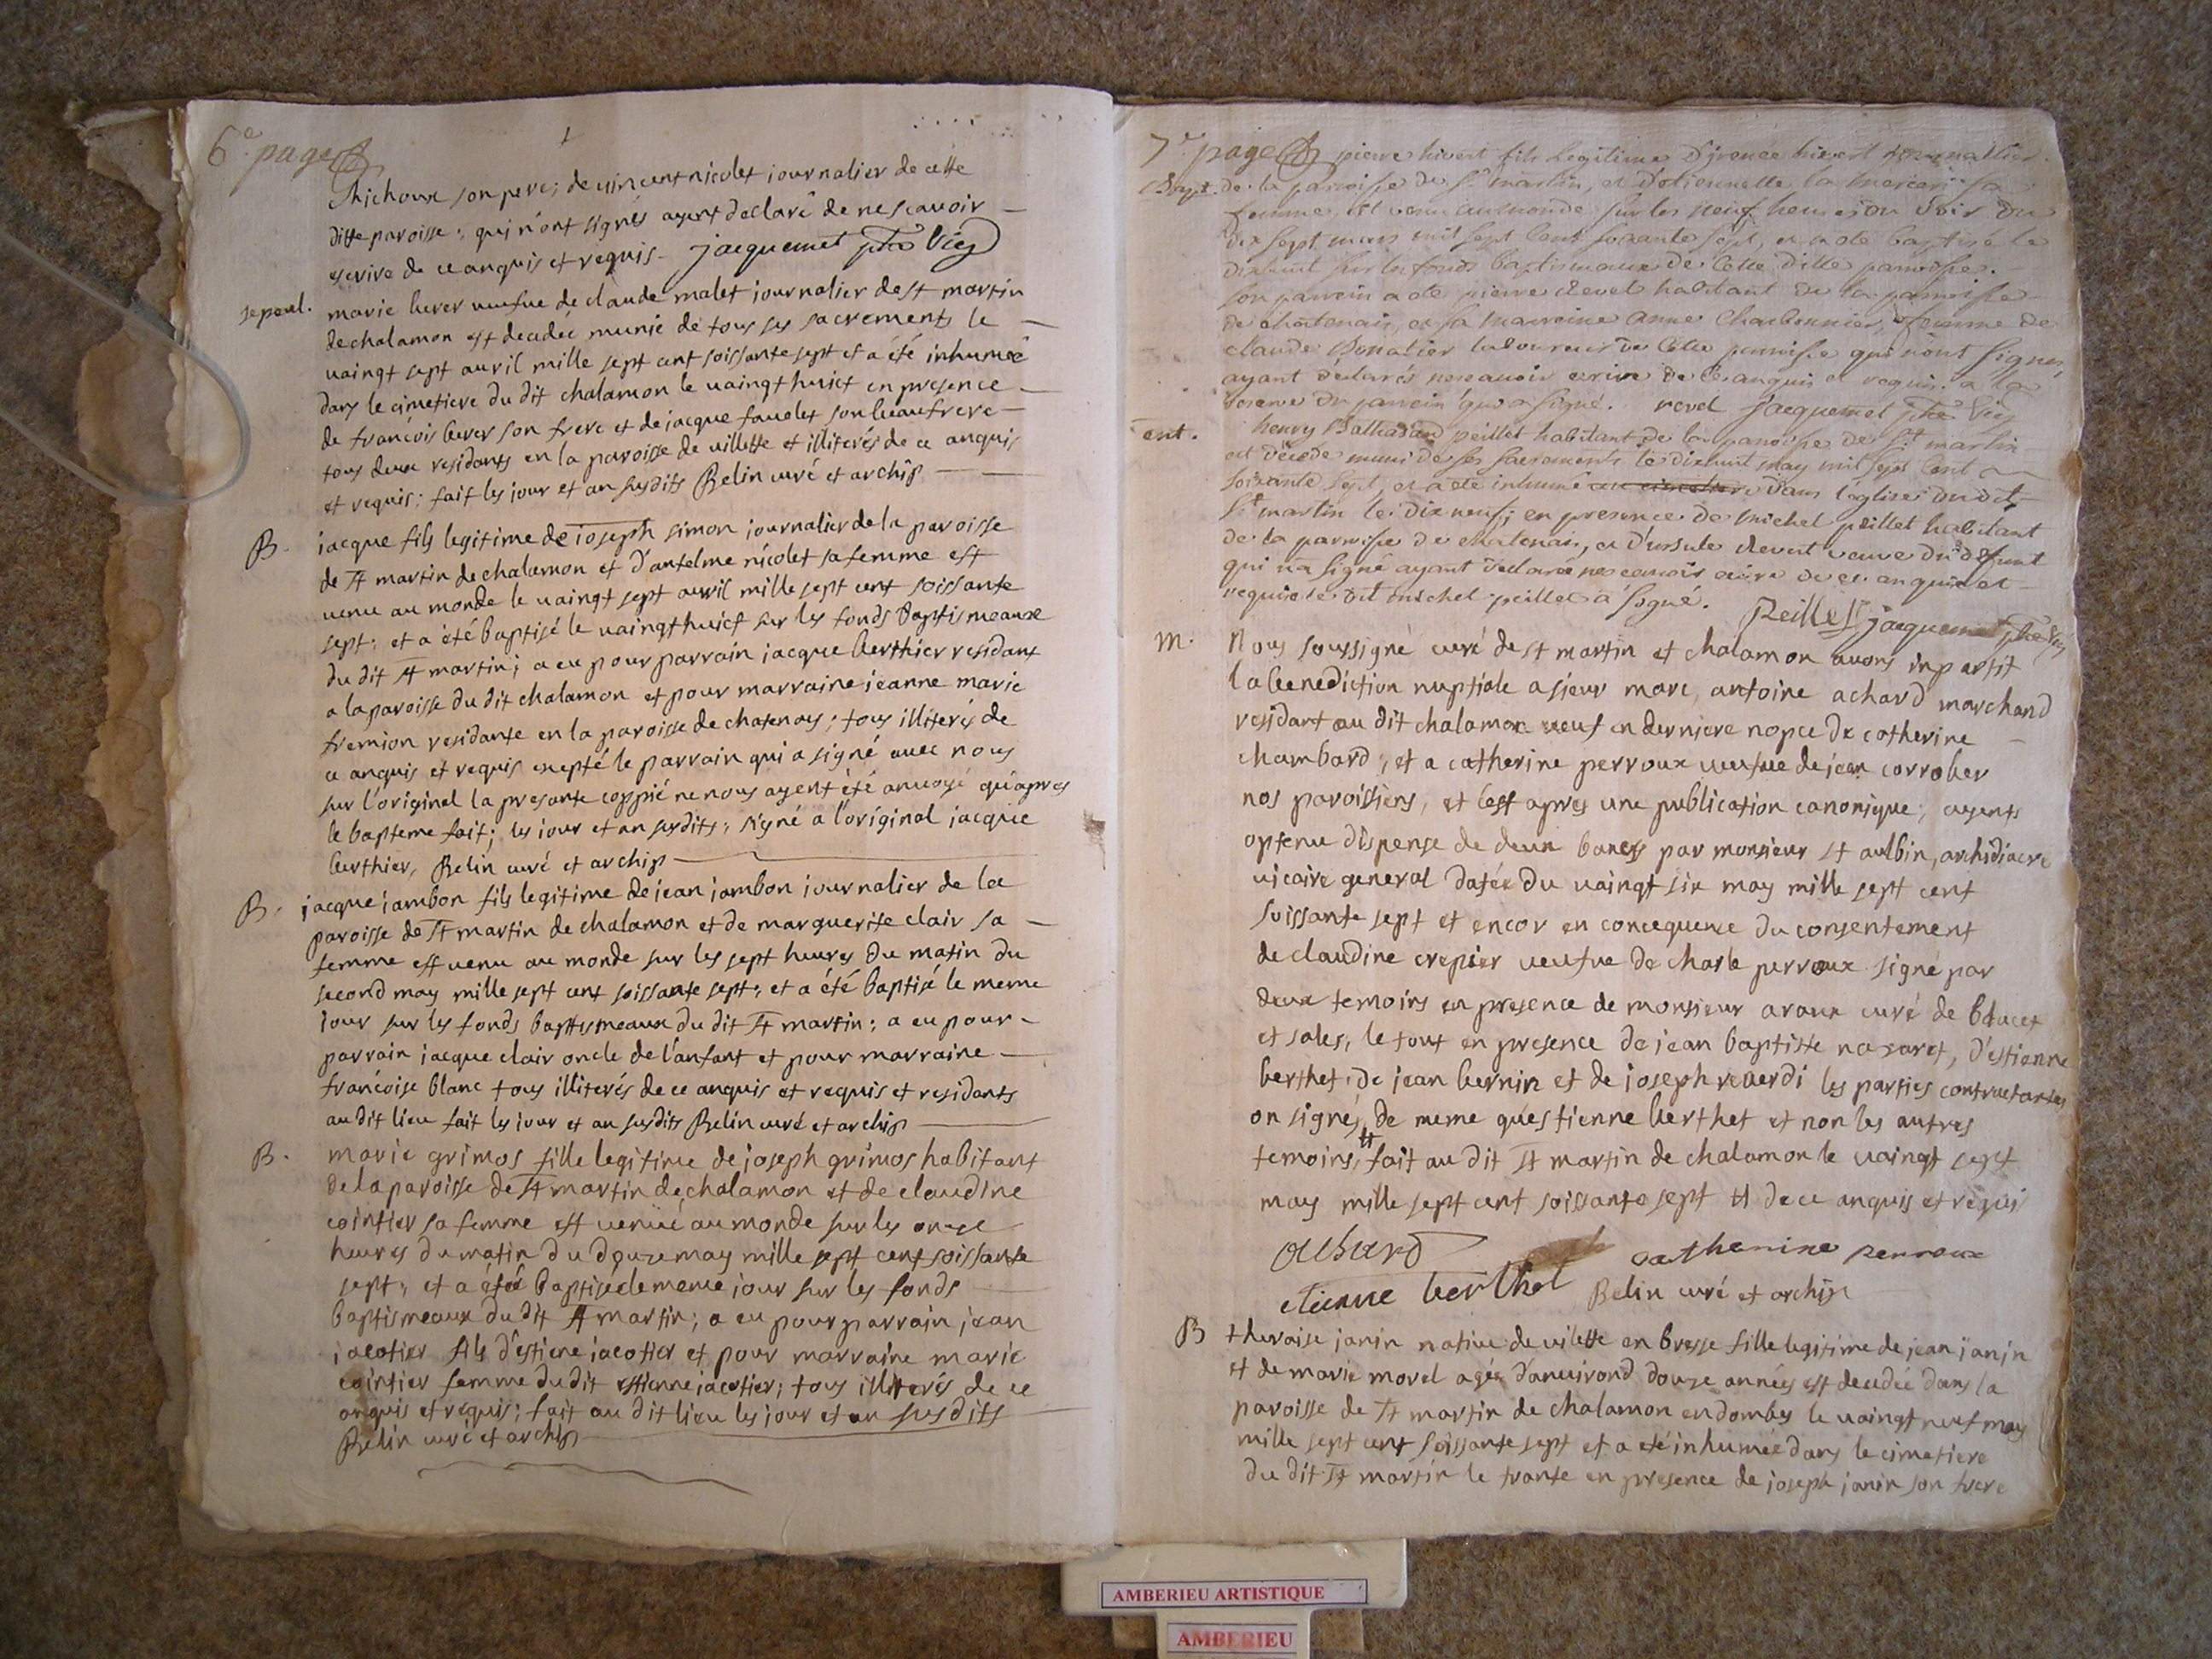 6e. page
Michoux son pere; de vincent nicolet journalier de cette
ditte paroisse; qui n'ont signés ayent declaré de ne scavoir
escrire de ce anquis et requis - jacquemet ptre Vic
sepeul. marie burer veufue de claude malet journalier de st martin
de chalamon est decedée munie de tous ses sacrements le
vaingt sept auril mille sept cent soissante sept et a été inhumée
dans le cimetiere du dit chalamon le vaingt huict en presence
de françois burer son frere et de jacque faucles son beaufrere
tous deux residants en la paroisse de villette et illiterés de ce anquis
et requis; fait les jour et an susdits Belin curé et archip
B. jacque fils legitime de joseph simon journalier de la paroisse
de st martin de chalamon et d'antelme nicolet sa femme est
venu au monde le vaingt sept auril mille sept cent soissante
sept; et a été baptisé le vaingthuict sur les fonds baptismeaux
du dit st martin; a eu pour parrain jacque berthier residant
a la paroisse du dit chalamon et pour marraine jeanne marie
fremion residante en la paroisse de chatenay; tous illiterés de
ce anquis et requis excepté le parrain qui a signé auec nous
sur l'original la presante coppie ne nous ayent été anuoyé qu'apres
le bapteme fait; les jour et an susdits; signé a l'original jacque
berthier, Belin curé et archip
B. jacque jambon fils legitime de jean jambon journalier de la
paroisse de st martin de chalamon et de marguerite clair sa
femme est venu au monde sur les sept heures du matin du
second may mille sept cent soissante sept; et a été baptisé le meme
jour sur les fonds baptismeaux du dit st martin; a eu pour
parrain jacque clair oncle de l'anfant et pour marraine
françoise blanc tous illiterés de ce anquis et requis et residants
au dit lieu fait les jour et an susdits Belin curé et archip
B. marie grimos fille legitime de joseph grimos habitant
de la paroisse de st martin de chalamon et de claudine
cointier sa femme est venue au monde sur les onze
heures du matin du douze may mille sept cent soissante
sept; et a été baptisée le meme jour sur les fonds
baptismeaux du dit st martin; a eu pour parrain jean
jacotier fils d'estiene jacotier et pour marraine marie
cointier femme du dit estienne jacotier; tous illiterés de ce
anquis et requis; fait au dit lieu les jour et an susdits
Belin curé et archip
7e. page pierre hivert fils legitime d'irenée hivert journallier
Bapt. de la paroisse de St martin, et d'etiennette la mercerie sa
femme, est venu au monde sur les neuf heures du soir du
dix sept may mil sept cent soixante sept, et a été baptisé le
dixhuit sur les fonds baptismaux de cette ditte paroisse.
son parrein a été pierre revel habitant de la paroisse
de chatenais, et sa marraine anne Charbonnier, femme de
claude Bonatier laboureur de cette paroisse qui n'ont signés,
ayant declarés ne scauoir ecrire de ce anquis et requis a la
reserve du parrein qui a signé. revel jacquemet ptre Vic
ent. henry Balthazard peillet habitant de la paroisse de st martin
est decedé muni de ses sacrements le dixhuit may mil sept cent
soixante sept, et a été inhumé au cimetiere dans l'eglise du dit
St martin le dix neuf; en presence de michel peillet habitant
de la paroisse de chatenais, et d'ursule revert veuve du defunt
qui n'a signé ayant declaré ne scauoir ecrire de ce anquis et
requis le dit michel peillet a signé. Peillet jacquemet ptre Vic
M. Nous soussigné curé de st martin et chalamon auons inpartit
la benediction nuptiale a sieur marc, antoine achard marchand
residant au dit chalamon veuf en derniere nopce de catherine
chambard; et a catherine perroux veufue de jean corrober
nos paroissiens, et cest apres une publication canonique; ayents
optenu dispense de deux bancs par monsieur st aulbin, archidiacre
vicaire general datée du vaingt six may mille sept cent
soissante sept et encor en concequence du consentement
de claudine crepier veufue de charle perroux signé par
deux temoins en presence de monsieur araux curé de blacet
et sales, le tout en presence de jean baptiste nasaret, d'estienne
berthet, de jean burnin et de joseph reverdi les parties contractantes
on signés, de meme qu'estienne berthet et non les autres
temoins, # fait au dit st martin de chalamon le vaingt sept
may mille sept cent soissante sept # de ce anquis et requis
achard catherine perroux
etienne berthet Belin curé et archip
B theraise janin natiue de vilette en bresse fille legitime de jean janin
et de marie morel agée d'anuirond douze années est decedée dans la
paroisse de st martin de chalamon en dombes le vaingt neuf may
mille sept cent soissante sept et a été inhumée dans le cimetiere
du dit st martin le trante en presence de joseph janin son frere
AMBERIEU ARTISTIQUE
AMBERIEU